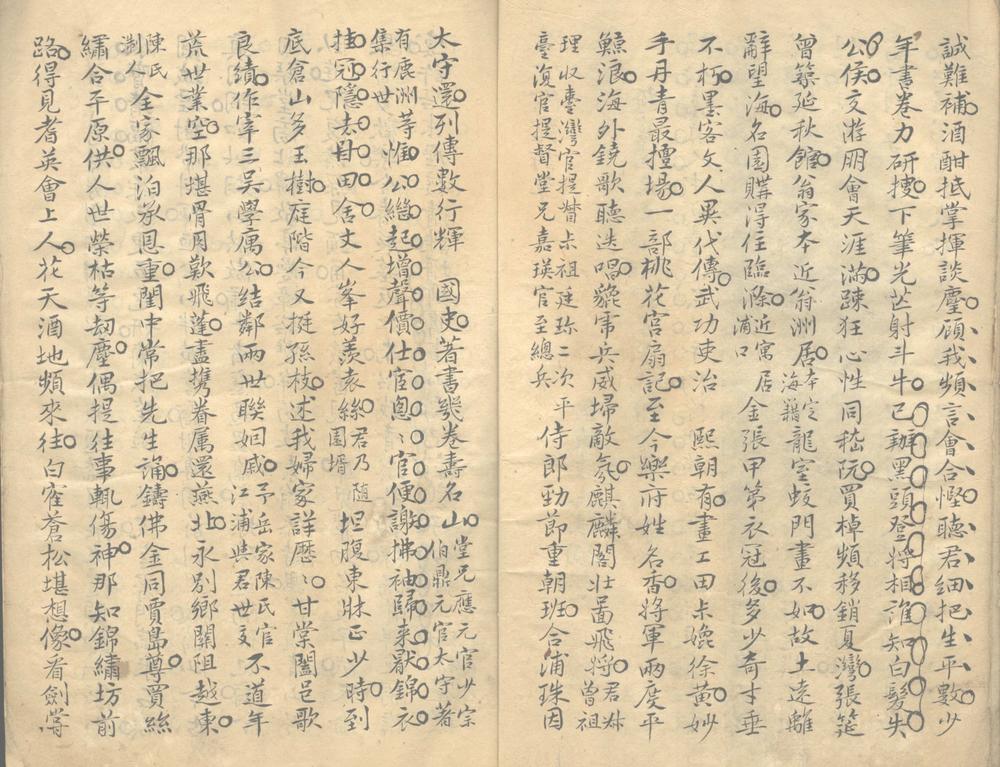 誠難補酒酣抵掌揮談麈頋我頻言會合慳聽君细把生平數少
年書卷力研搜下筆光芒射斗牛已辦黑頭登將相誰知白髮失
公侯交游朋會天涯滿踈狂心性同嵇阮買棹頻移銷夏灣張筵
曾築延秋館翁家本近翁洲居本定海籍龍室蛟門畫不如故土遠離
辭望海名園購得住臨滁近寓浦口居金張甲第衣冠後多少奇才垂
不朽墨客文人異代傳武功吏治 熙朝有畫工田尗嬔徐黄妙
手丹青最擅場一部桃花宫扇記至今樂府姓名香將軍兩度平
鯨浪海外鐃歌聽迭唱貔虎兵威埽敵氛麒麟閣壯啚飛將君叔曾祖
理收臺灣官提督尗祖廷珍二次平臺復官提督堂兄嘉瑛官至總兵侍郎勁節重朝班合浦珠因
太守還列傳數行輝 國史著書幾卷壽名山堂兄應元官少宗伯鼎元官太守著
有鹿洲等集行世惟公繼起增聲價仕宦悤〻官便謝拂袖歸来猒錦衣
挂冠隱去甘田舍丈人峯好羨袁絲君乃随園壻坦腹東牀正少時到
底倉山多玉樹庭階今又挺孫枝述我婦家詳歷〻甘棠闔邑歌
良績作宰三吴學寓公結鄰兩世聯姻戚予岳家陳氏官江浦與君世交不道年
荒世業空那堪骨肉歎飛蓬盡携眷属還燕北永别鄉關阻越東
陳氏浙人全家飄泊承恩重閨中常把先生誦鑄佛金同賈島尊買絲
繡合平原供人世榮枯等刧麈偶提往事輒傷神那知錦繡坊前
路得見耆英會上人花天酒地頻來往白雀蒼松堪想像看劍嘗